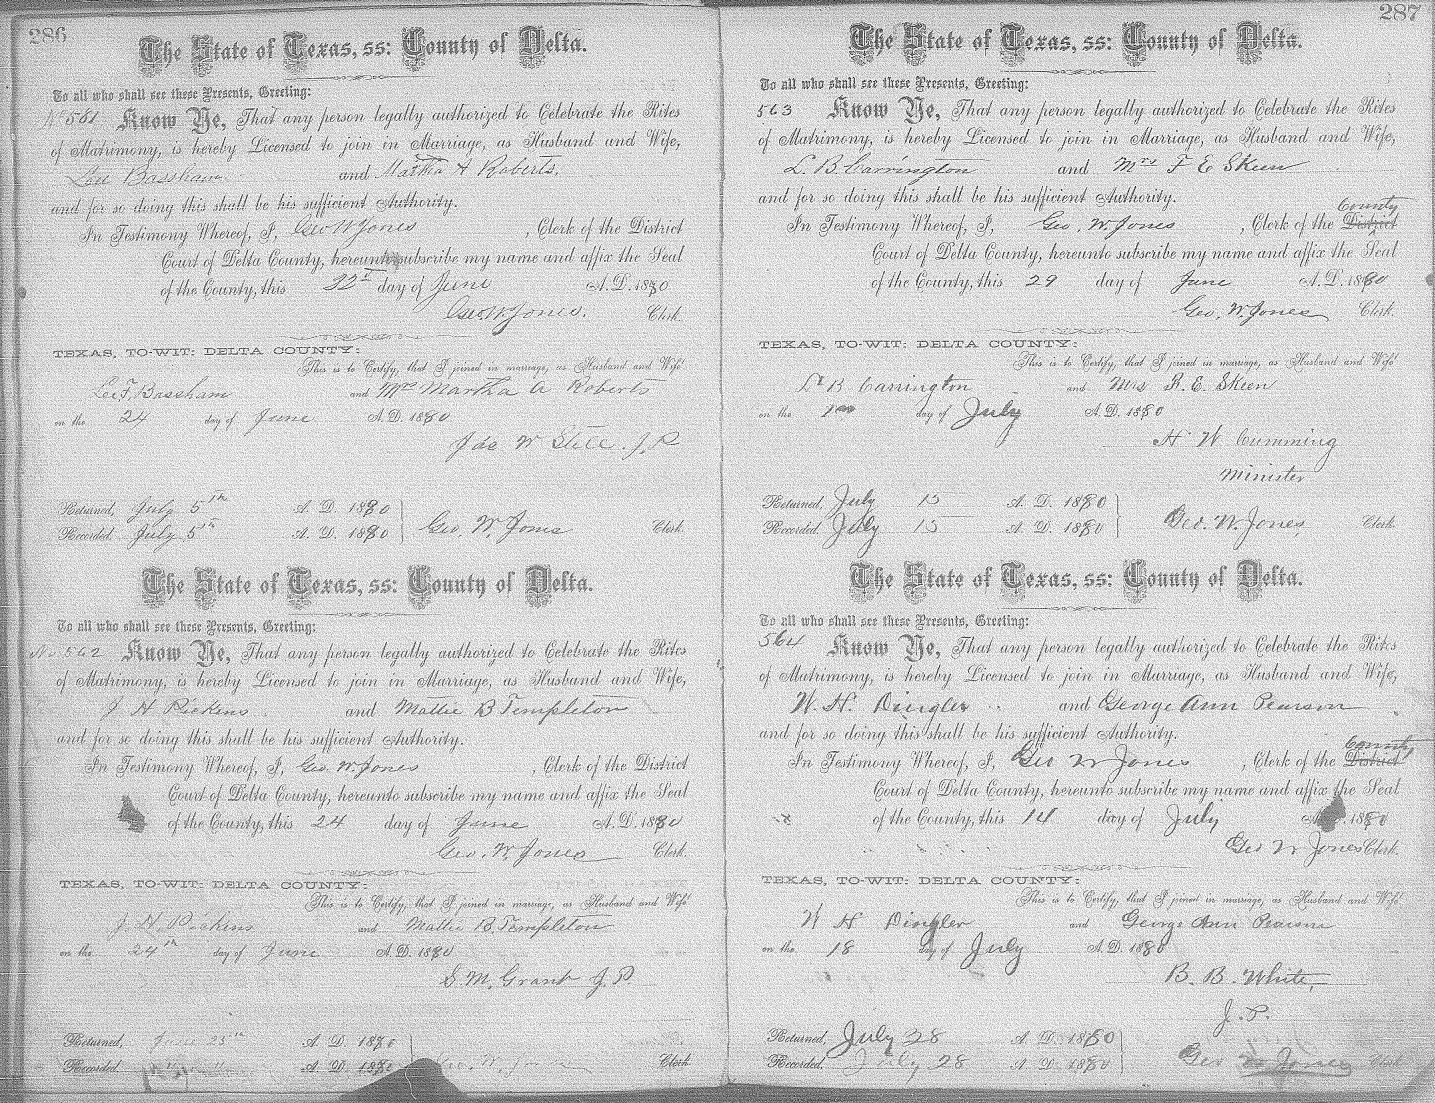 286
The State of Texas, ss: County of Delta.
To all who shall see these Presents, Greeting:
No 561 Know Ye, That any person legally authorized to Celebrate the Rites
of Matrimony, is hereby Licensed to join in Marriage, as Husband and Wife,
Lee Bassham and Martha A Roberts,
and for so doing this shall be his sufficient Authority.
In Testimony Whereof, I, Geo W Jones, Clerk of the District
Court of Delta County, hereunto subscribe my name and affix the Seal
of the County, this 22 day of June A. D. 1880
Geo W Jones. Clerk.
TEXAS, TO-WIT: DELTA COUNTY:
This is to Certify, that I joined in marriage, as Husband and Wife
Lee T. Bassham and Mrs Martha A Roberts
on the 24 day of June A. D. 1880
Jas W Stell J. P.
Returned, July 5th A. D. 1880
Recorded, July 5th A. D. 1880 Geo. W. Jones Clerk.
The State of Texas, ss: County of Delta.
To all who shall see these Presents, Greeting:
No 562 Know Ye, That any person legally authorized to Celebrate the Rites
of Matrimony, is hereby Licensed to join in Marriage, as Husband and Wife,
J H Pickens and Mattie B Templeton
and for so doing this shall be his sufficient Authority.
In Testimony Whereof, I, Geo. W. Jones, Clerk of the District
Court of Delta County, hereunto subscribe my name and affix the Seal
of the County, this 24 day of June A. D. 1880
Geo. W. Jones Clerk.
TEXAS, TO-WIT: DELTA COUNTY:
This is to Certify, that I joined in marriage, as Husband and Wife
J. H. Pickens and Mattie B. Templeton
on the 24th day of June A. D. 1880
S. M. Grant J. P
Returned, June 25th A. D. 1880
Recorded, " " A. D. 1880 Geo. W. Jones Clerk
287
The State of Texas, ss: County of Delta.
To all who shall see these Presents, Greeting:
563 Know Ye, That any person legally authorized to Celebrate the Rites
of Matrimony, is hereby Licensed to join in Marriage, as Husband and Wife,
L. B. Carrington and Mrs F E Skeen
and for so doing this shall be his sufficient Authority.
County
In Testimony Whereof, I, Geo. W. Jones, Clerk of the District
Court of Delta County, hereunto subscribe my name and affix the Seal
of the County, this 29 day of June A. D. 1880
Geo. W. Jones Clerk.
TEXAS, TO-WIT: DELTA COUNTY:
This is to Certify, that I joined in marriage, as Husband and Wife
B Carrington and Mrs E. Skeen
on the day of July A. D. 1880
H W Cumming
Minister
Returned, July 13 A. D. 1880
Recorded, July 13 A. D. 1880 Geo. W. Jones, Clerk
The State of Texas, ss: County of Delta.
To all who shall see these Presents, Greeting:
564 Know Ye, That any person legally authorized to Celebrate the Rites
of Matrimony, is hereby Licensed to join in Marriage, as Husband and Wife,
W. H. Dingler and George Ann Pearson
and for so doing this shall be his sufficient Authority.
County
In Testimony Whereof, I, Geo W Jones, Clerk of the District
Court of Delta County, hereunto subscribe my name and affix the Seal
of the County, this 14 day of July A. D. 1880
Geo W Jones Clerk.
TEXAS, TO-WIT: DELTA COUNTY:
This is to Certify, that I joined in marriage, as Husband and Wife
W H Dingler and George Ann Pearson
on the 18 day of July A. D. 1880
B. B. White,
J. P.
Returned, July 28 A. D. 1880
Recorded, July 28 A. D. 1880 Geo W Jones Clerk